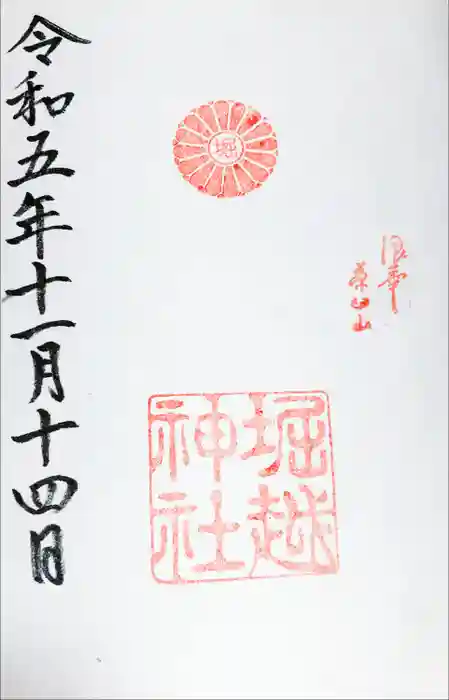 浪華
茶臼山
堀
堀越
神社
令和五年十一月十四日